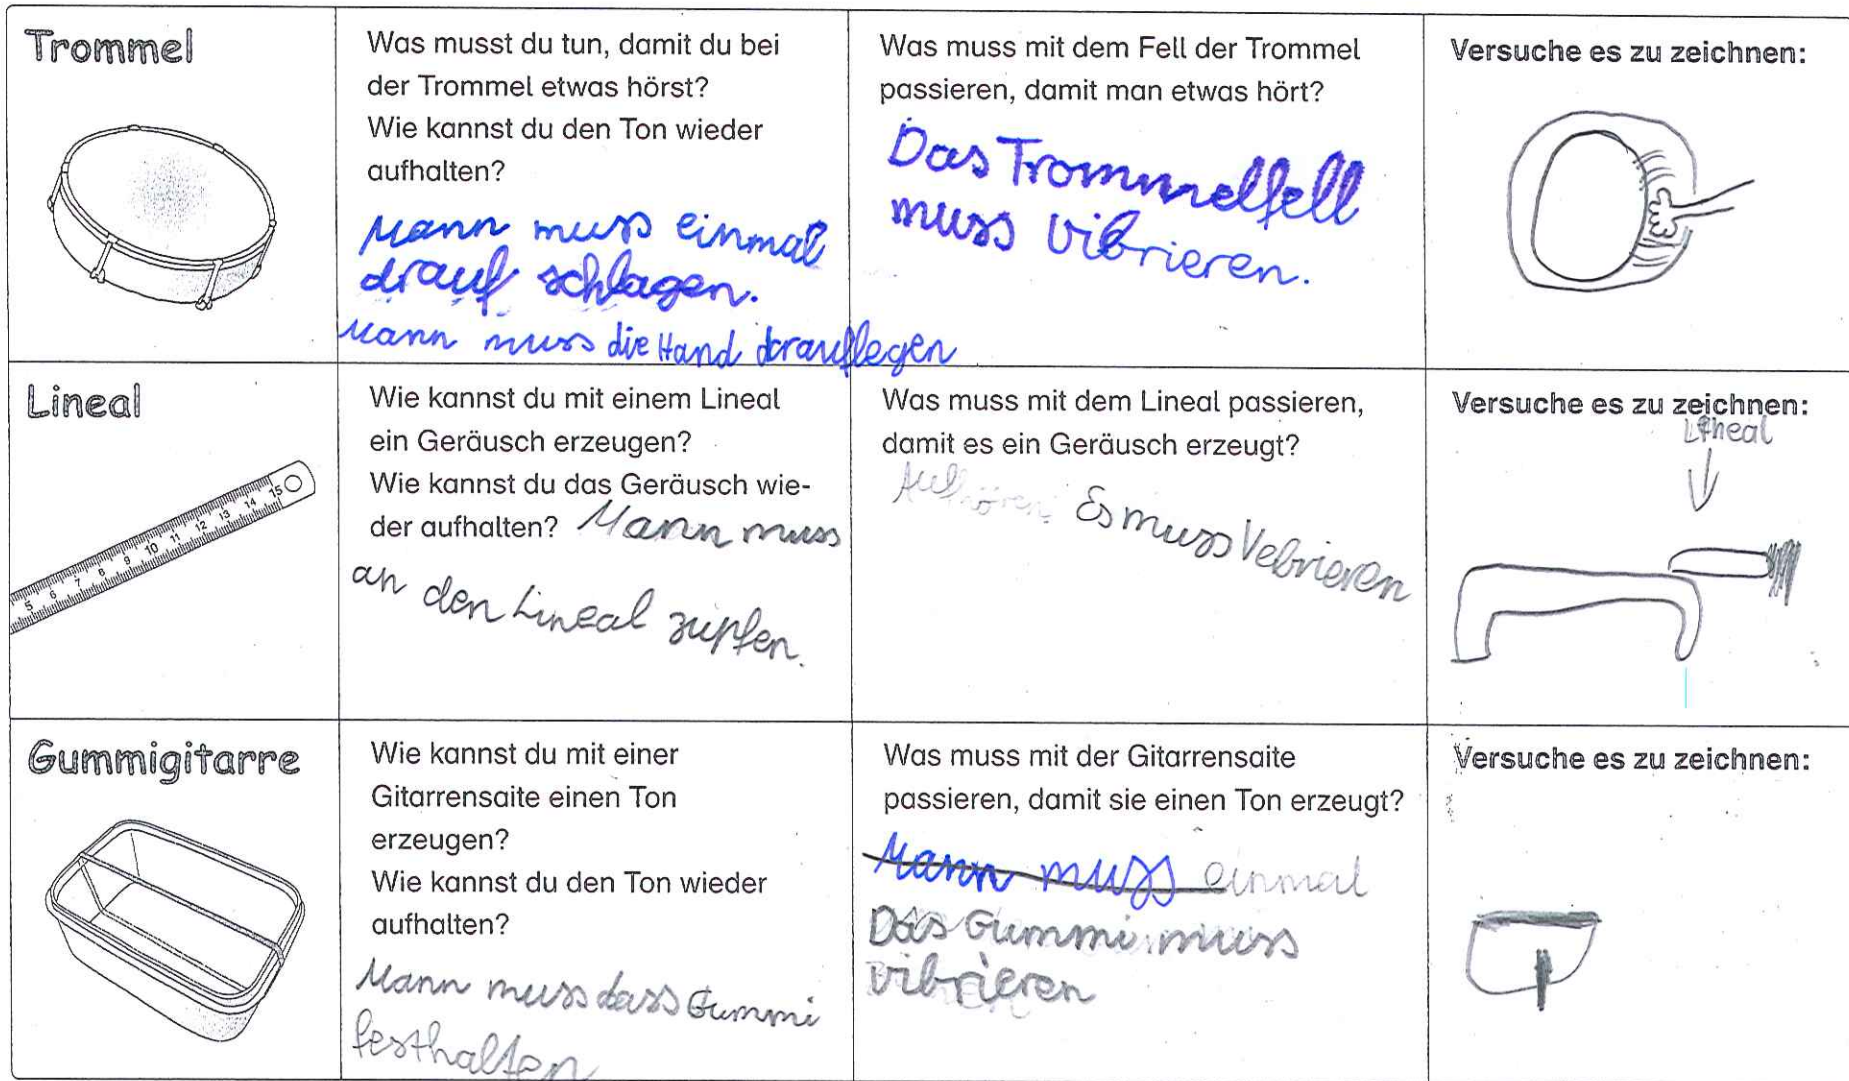 Trommel
Was musst du tun, damit du bei
der Trommel etwas hörst?
Wie kannst du den Ton wieder
aufhalten?
Mann muss einmal
drauf schlagen.
Mann muss die Hand drauflegen
Was muss mit dem Fell der Trommel
passieren, damit man etwas hört?
Das Trommelfell
muss vibrieren.
Versuche es zu zeichnen:
Lineal
5 6 7 8 9 10 11 12 13 14 15
Wie kannst du mit einem Lineal
ein Geräusch erzeugen?
Wie kannst du das Geräusch wie-
der aufhalten? Mann muss
an den Lineal zupfen.
Was muss mit dem Lineal passieren,
damit es ein Geräusch erzeugt?
Aufhören. Es muss Vebrieren
Versuche es zu zeichnen:
Lineal
Gummigitarre
Wie kannst du mit einer
Gitarrensaite einen Ton
erzeugen?
Wie kannst du den Ton wieder
aufhalten?
Mann muss dass Gummi
festhalten
Was muss mit der Gitarrensaite
passieren, damit sie einen Ton erzeugt?
Mann muss einmal
Das Gummi muss
vibrieren
Versuche es zu zeichnen: